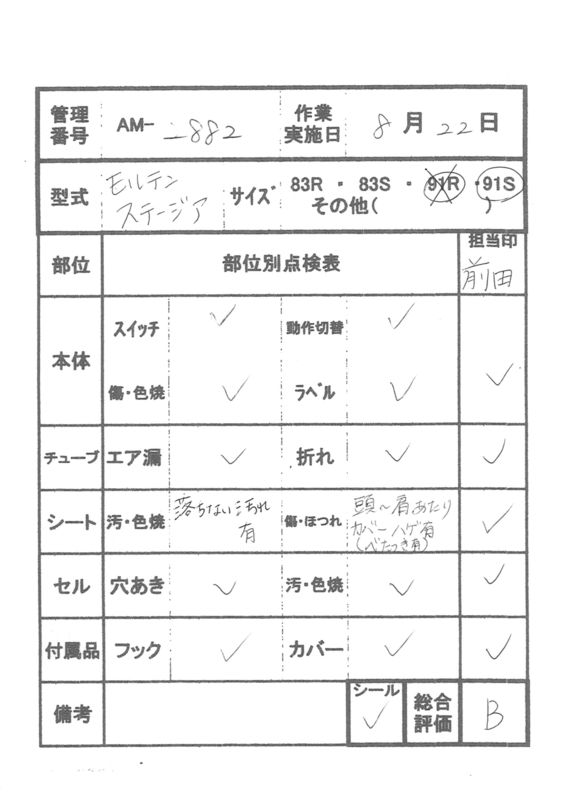 管理番号 AM- -882 作業実施日 8月22日
型式 モルテン ステージア サイズ 83R ・ 83S ・ 91R ・ 91S
その他( )
部位 部位別点検表 担当印
前田
本体 スイッチ ✓ 動作切替 ✓
傷・色焼 ✓ ラベル ✓ ✓
チューブ エア漏 ✓ 折れ ✓ ✓
シート 汚・色焼 落ちない汚れ有 傷・ほつれ 頭～肩あたりカバーハゲ有(べたつき有) ✓
セル 穴あき ✓ 汚・色焼 ✓ ✓
付属品 フック ✓ カバー ✓ ✓
備考 シール ✓ 総合評価 B